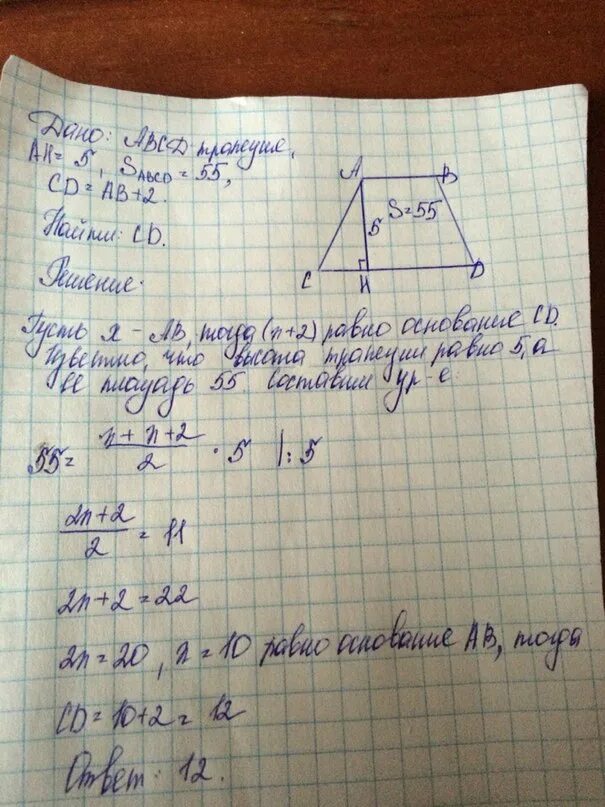 Дано: ABCD трапеция,
AH = 5, SABCD = 55,
CD = AB+2.
Найти: CD.
Решение:
A B
5 S=55
C H D
Пусть x - AB, тогда (x+2) равно основание CD.
Известно, что высота трапеции равно 5, а
её площадь 55. Составим ур-е:
55 = \frac{x+x+2}{2} · 5 |:5
\frac{2x+2}{2} = 11
2x+2=22
2x=20, x=10 равно основание AB, тогда
CD=10+2=12
Ответ: 12.